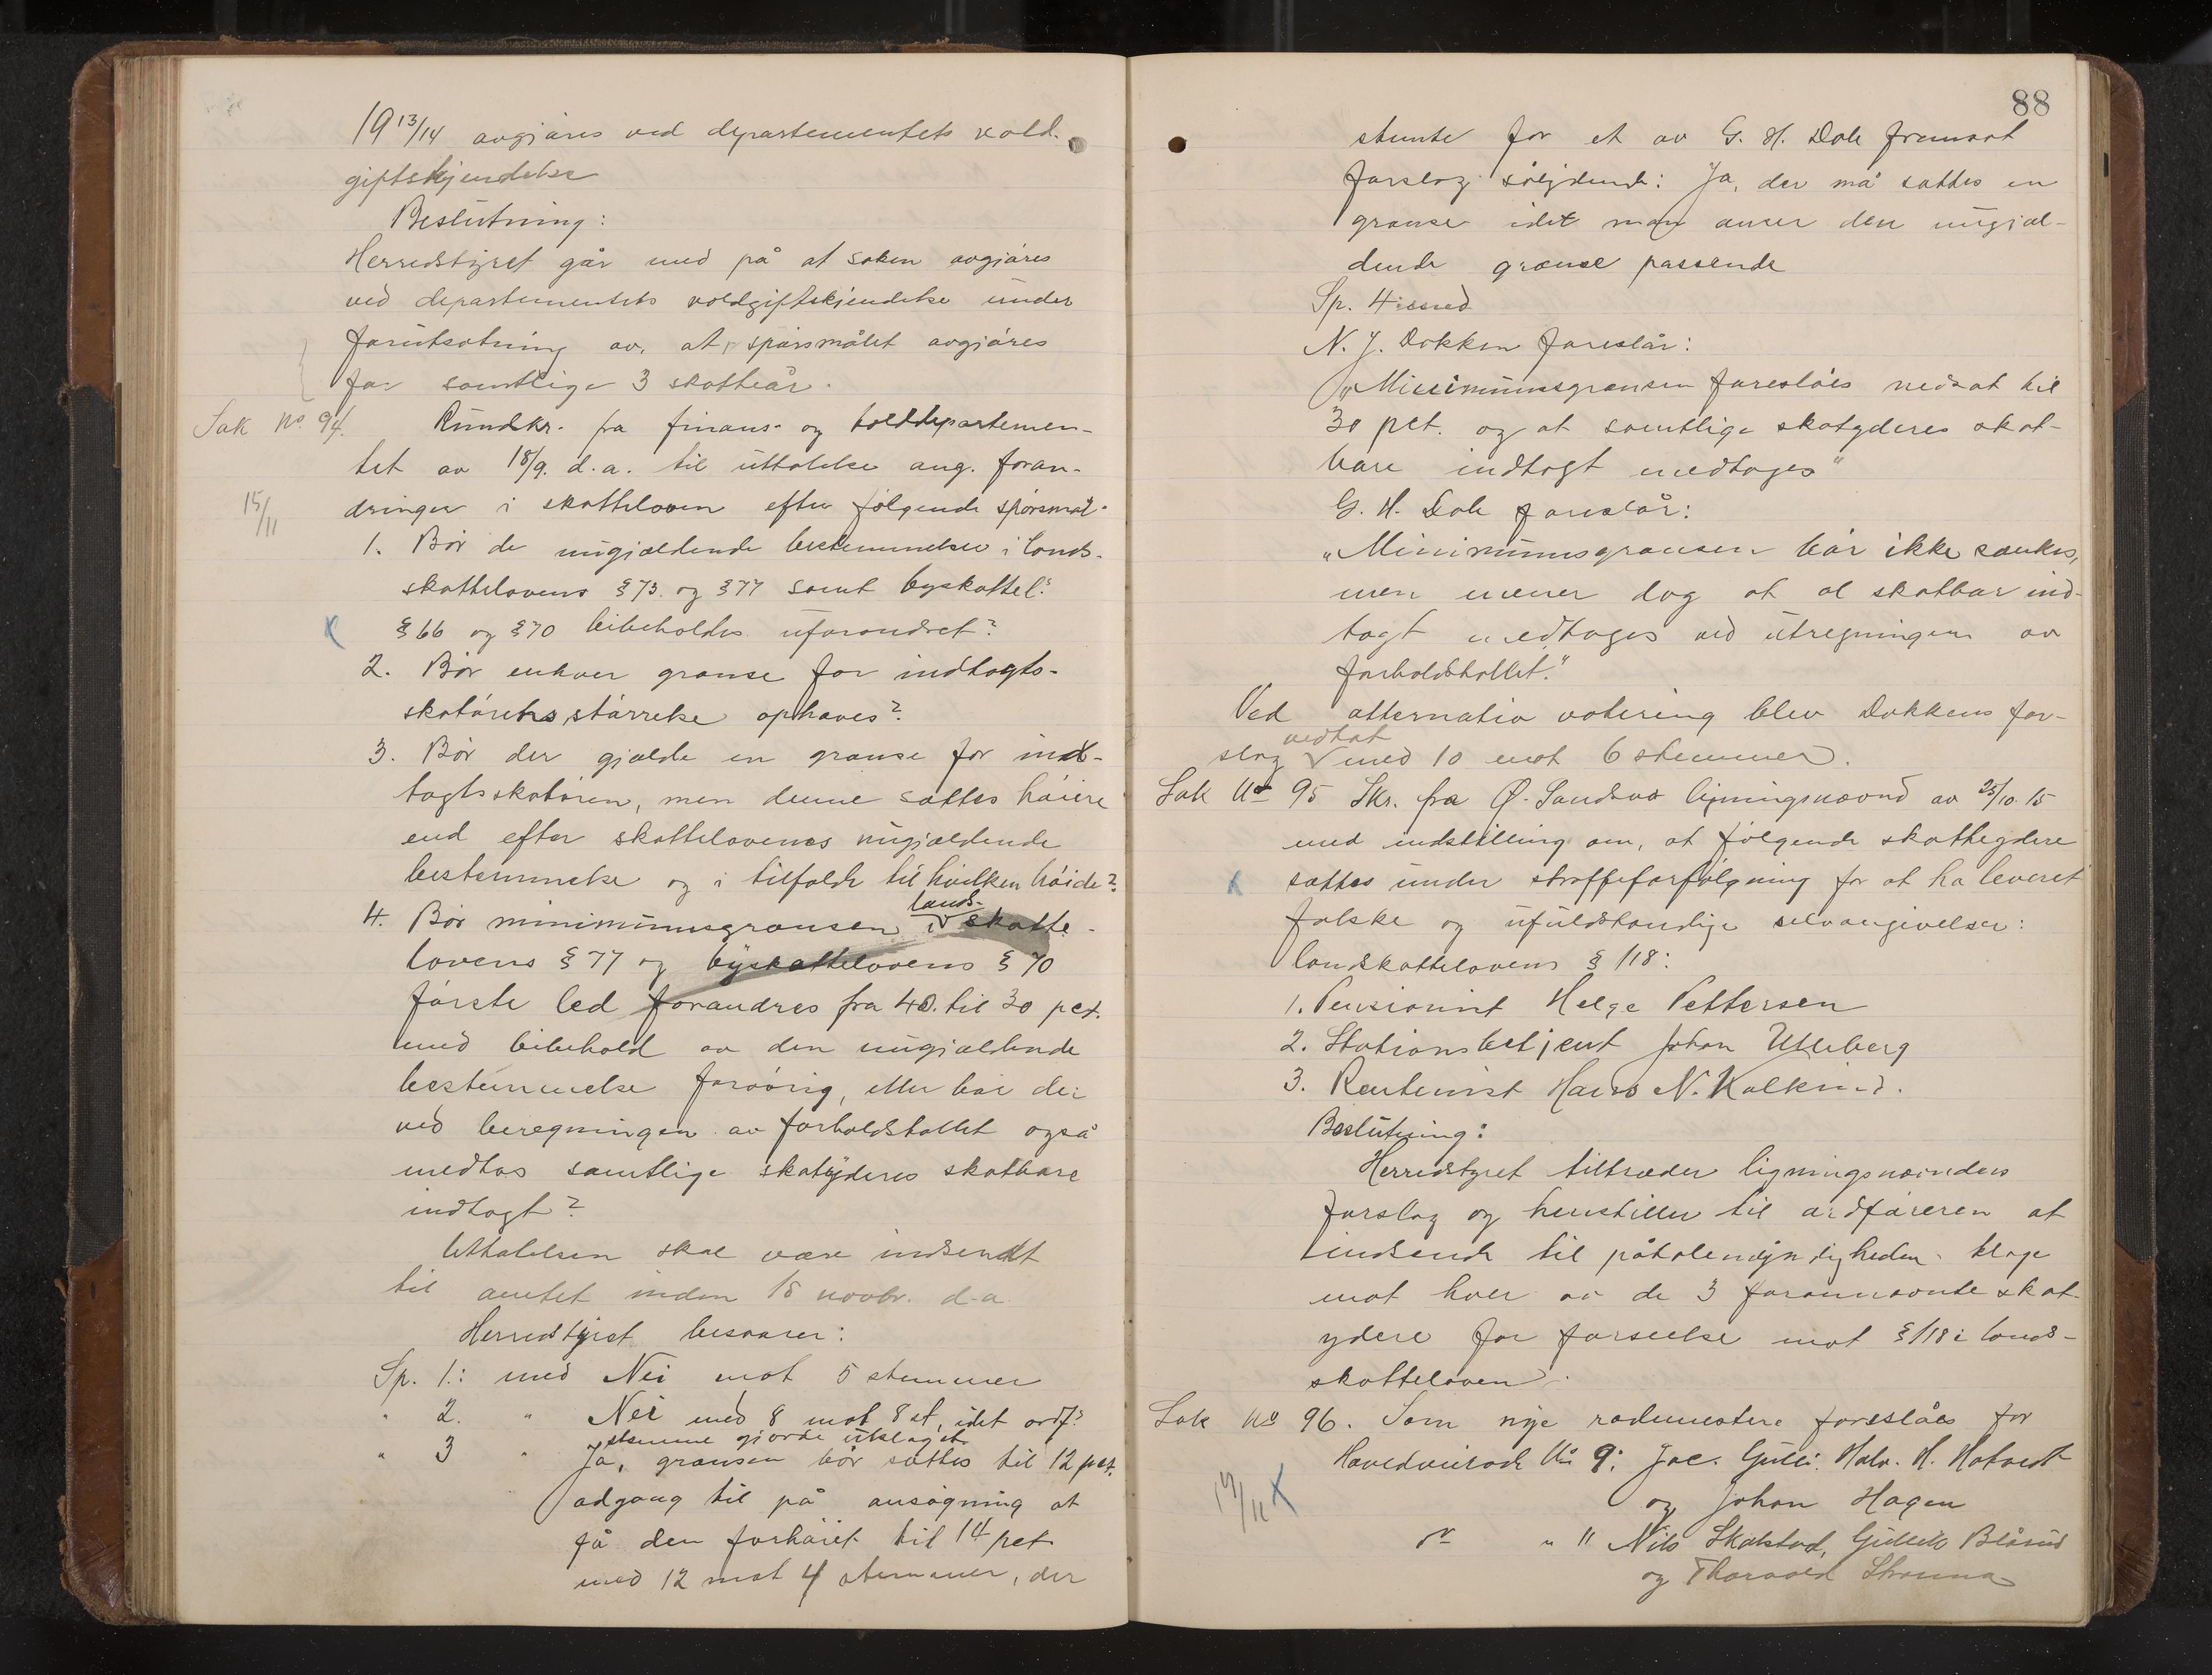 19 13/14 avgjøres ved departementets vold-
giftskjendelse
Beslutning:
Herredstyret går med på at saken avgjøres
ved departementets voldgiftskjendelse under
forutsætning av, at spørsmålet avgjøres
for samtlige 3 skatteår.
Sak No. 94. Rundskr. fra finans- og tolddepartemen-
tet av 18/9. d.a. til uttalelse ang. foran-
15/11
dringer i skatteloven efter følgende spørsmål.
1. Bør de nugjældende bestemmelser i lands-
skattelovens § 73. og § 77 samt byskattel.s
§ 66 og § 70 bibeholdes uforandret?
2. Bør enhver grænse for indtægts-
skatørets størrelse ophæves?
3. Bør der gjælde en grænse for ind-
tægtsskatøren, men denne sættes høiere
end efter skattelovenes nugjældende
bestemmelse og i tilfælde til hvilken høide?
4. Bør minimumsgrænsen i lands-skatte-
lovens § 77 og byskattelovens § 70
første led forandres fra 40. til 30 pct.
med bibehold av den nugjældende
bestemmelse forøvrig, eller bør der
ved beregningen av forholdstallet også
medtas samtlige skatyderes skatbare
indtægt?
Uttalelsen skal være indsendt
til amtet inden 15 novbr. d.a.
Herredstyret besvarer:
Sp. 1.: med Nei mot 5 stemmer
" 2. " Nei med 8 mot 8 st, idet ordf.s
stemme gjorde utslaget
" 3 " Ja, grænsen bør sættes til 12 pct.
adgang til på ansøgning at
få den forhøiet til 14 pct
med 12 mot 4 stemmer, der
88
stemte for et av G. H. Dale fremsat
forslag sålydende: Ja, der må sættes en
grænse idet man anser den nugjæl-
dende grænse passende
Sp. 4
N. J. Dokken foreslår:
"Minimumsgrænsen foreslåes nedsat til
30 pct. og at samtlige skatyderes skat-
bare indtægt medtages"
G. H. Dale foreslår:
"Minimumsgrænsen bør ikke sænkes,
men mener dog at al skatbar ind-
tægt medtages ved utregningen av
forholdstallet."
Ved alternativ votering blev Dokkens for-
slag vedtat med 10 mot 6 stemmer.
Sak No 95 Skr. fra Ø. Sandsvær ligningsnævnd av 25/10. 15
med indstilling om, at følgende skatteydere
sættes under straffeforfølgning for at ha leveret
falske og ufuldstændige selvangivelser:
landskattelovens § 118:
1. Pensionist Helge Pettersen
2. Stationsbetjent Johan Ulleberg
3. Rentenist Hans N. Kalkrud.
Beslutning:
Herredstyret tiltræder ligningsnævndens
forslag og henstiller til ordføreren at
indsende til påtalemyndigheden klage
mot hver av de 3 forannævnte skat-
ydere for forseelse mot § 118 i lands-
skatteloven.
Sak No 96. Som nye rodemestere foreslåes for
Hovedveirode No 9: Jac. Gulli. Halv. H. Hotvedt
17/11
og Johan Hagen
" 11 Nils Skalstad, Gullik Blåsud
og Thorvald Strøm